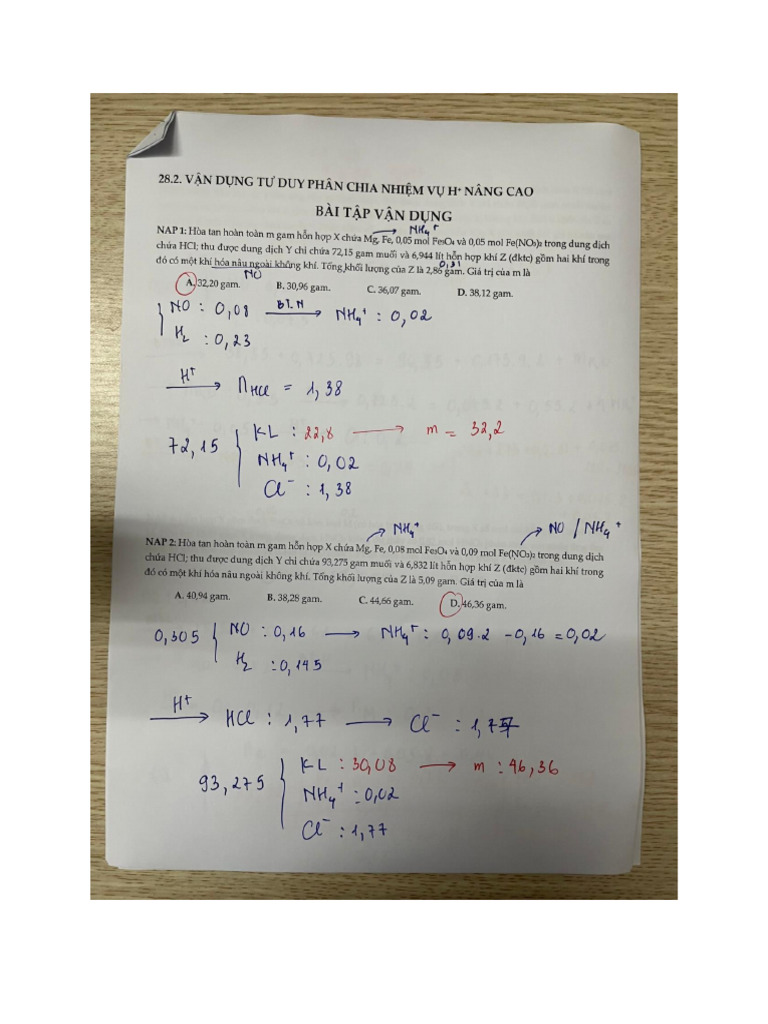 28.2. VẬN DỤNG TƯ DUY PHÂN CHIA NHIỆM VỤ H⁺ NÂNG CAO
BÀI TẬP VẬN DỤNG
→ NH₄⁺
NAP 1: Hòa tan hoàn toàn m gam hỗn hợp X chứa Mg, Fe, 0,05 mol Fe₃O₄ và 0,05 mol Fe(NO₃)₂ trong dung dịch
chứa HCl; thu được dung dịch Y chỉ chứa 72,15 gam muối và 6,944 lít hỗn hợp khí Z (đktc) gồm hai khí trong
0,31
đó có một khí hóa nâu ngoài không khí. Tổng khối lượng của Z là 2,86 gam. Giá trị của m là
NO
A. 32,20 gam. B. 30,96 gam. C. 36,07 gam. D. 38,12 gam.
NO : 0,08 BT.N → NH₄⁺ : 0,02
H₂ : 0,23
H⁺ → nHCl = 1,38
72,15 KL : 22,8 → m = 32,2
NH₄⁺ : 0,02
Cl⁻ : 1,38
→ NH₄⁺ → NO / NH₄⁺
NAP 2: Hòa tan hoàn toàn m gam hỗn hợp X chứa Mg, Fe, 0,08 mol Fe₃O₄ và 0,09 mol Fe(NO₃)₂ trong dung dịch
chứa HCl; thu được dung dịch Y chỉ chứa 93,275 gam muối và 6,832 lít hỗn hợp khí Z (đktc) gồm hai khí trong
đó có một khí hóa nâu ngoài không khí. Tổng khối lượng của Z là 5,09 gam. Giá trị của m là
A. 40,94 gam. B. 38,28 gam. C. 44,66 gam. D. 46,36 gam.
0,305 NO : 0,16 → NH₄⁺ : 0,09.2 - 0,16 = 0,02
H₂ : 0,145
H⁺ → HCl : 1,77 → Cl⁻ : 1,77
93,275 KL : 30,08 → m : 46,36
NH₄⁺ : 0,02
Cl⁻ : 1,77